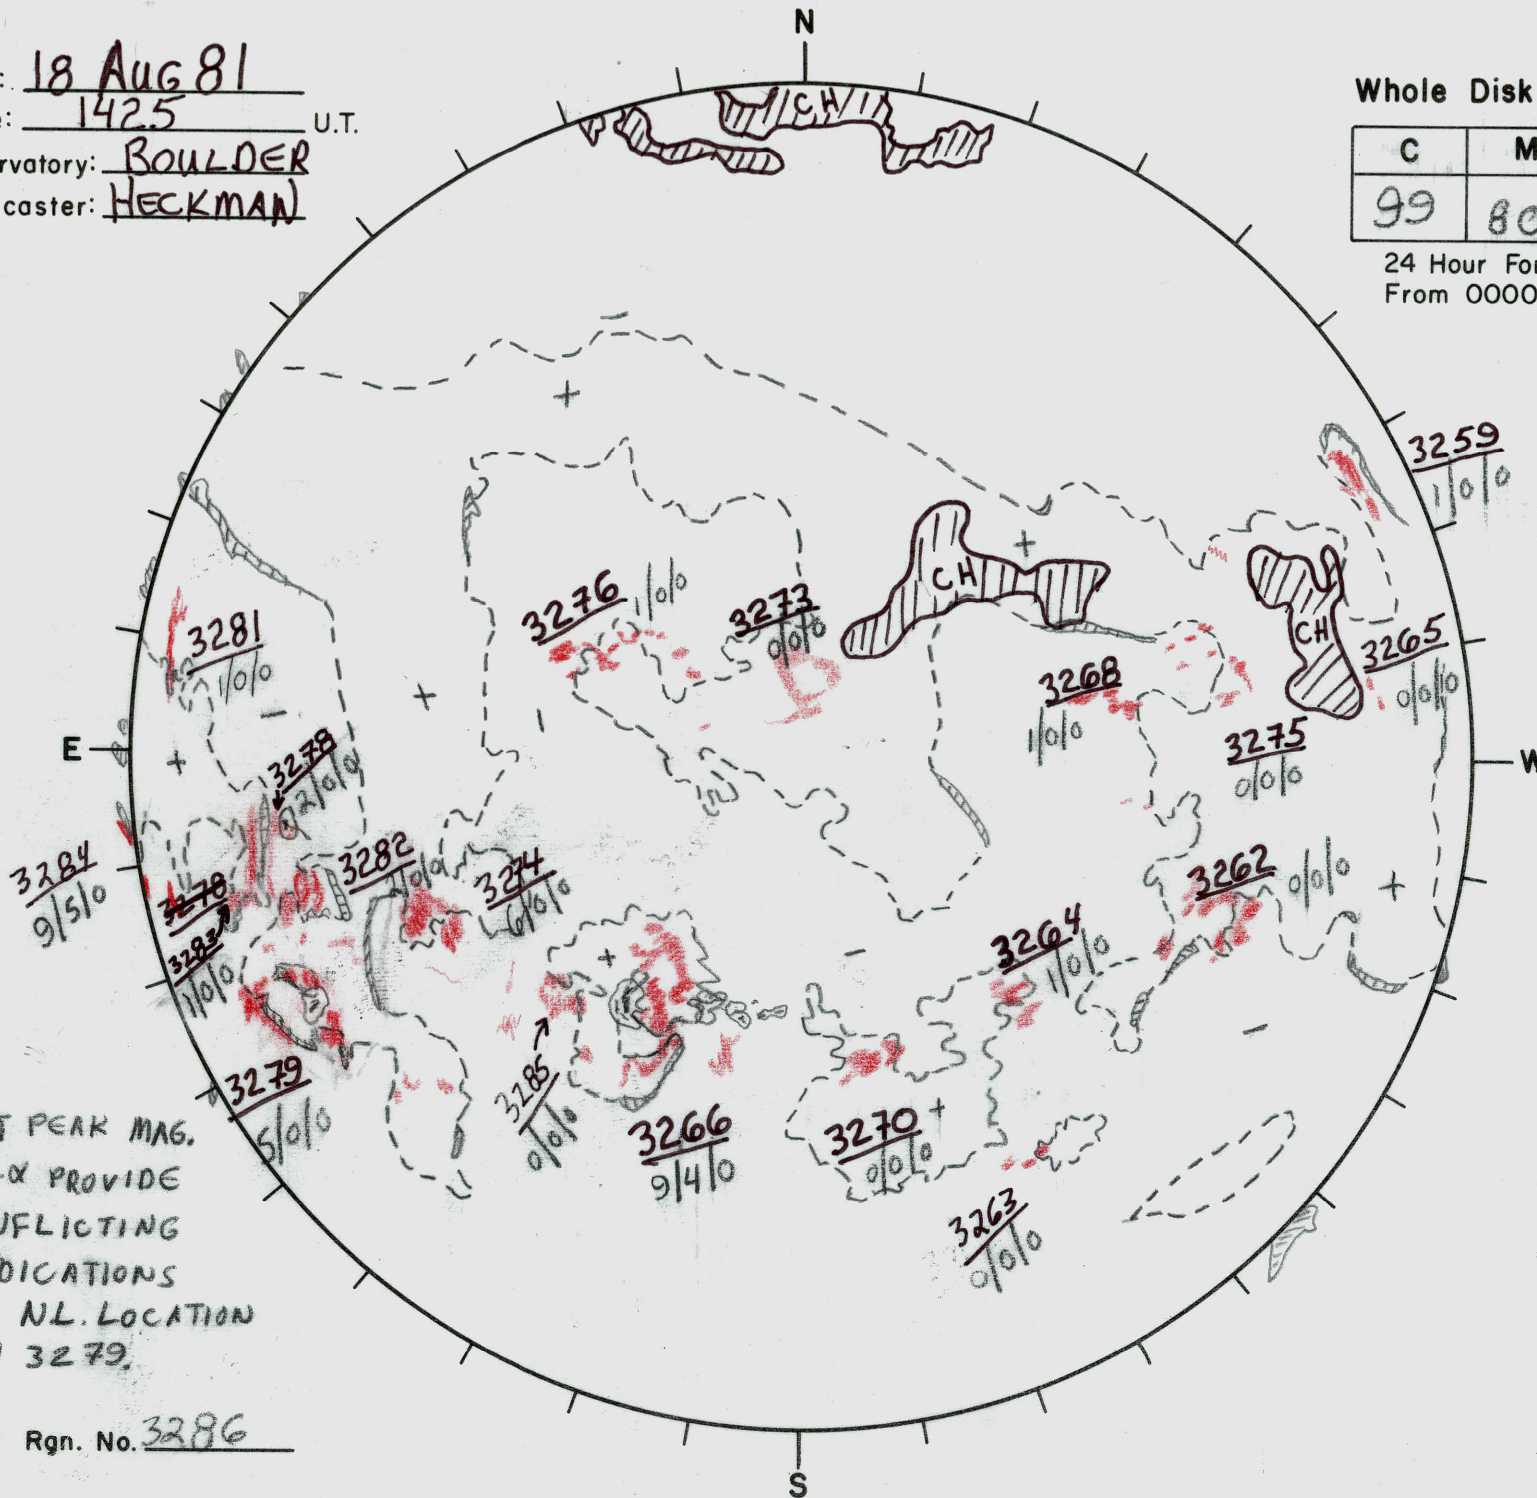 N
: 18 AUG 81
e: 1425 U.T.
rvatory: BOULDER
caster: HECKMAN
Whole Disk
C M
99 80
24 Hour For
From 0000
CH
3259
1/0/0
CH
CH
3276 1/0/0
3273
0/0/0
3281
1/0/0
3265
0/0/0
3268
1/0/0
3275
0/0/0
E
W
3278
2/0/0
3284
9/5/0
3278
3283
1/0/0
3282
2/0/0
3274
6/0/0
3262 0/0/0
3264
1/0/0
3279
5/0/0
3285
0/0/0
3266
9/4/0
3270
0/0/0
3263
0/0/0
T PEAK MAG.
-α PROVIDE
NFLICTING
DICATIONS
NL. LOCATION
3279.
Rgn. No. 3286
S